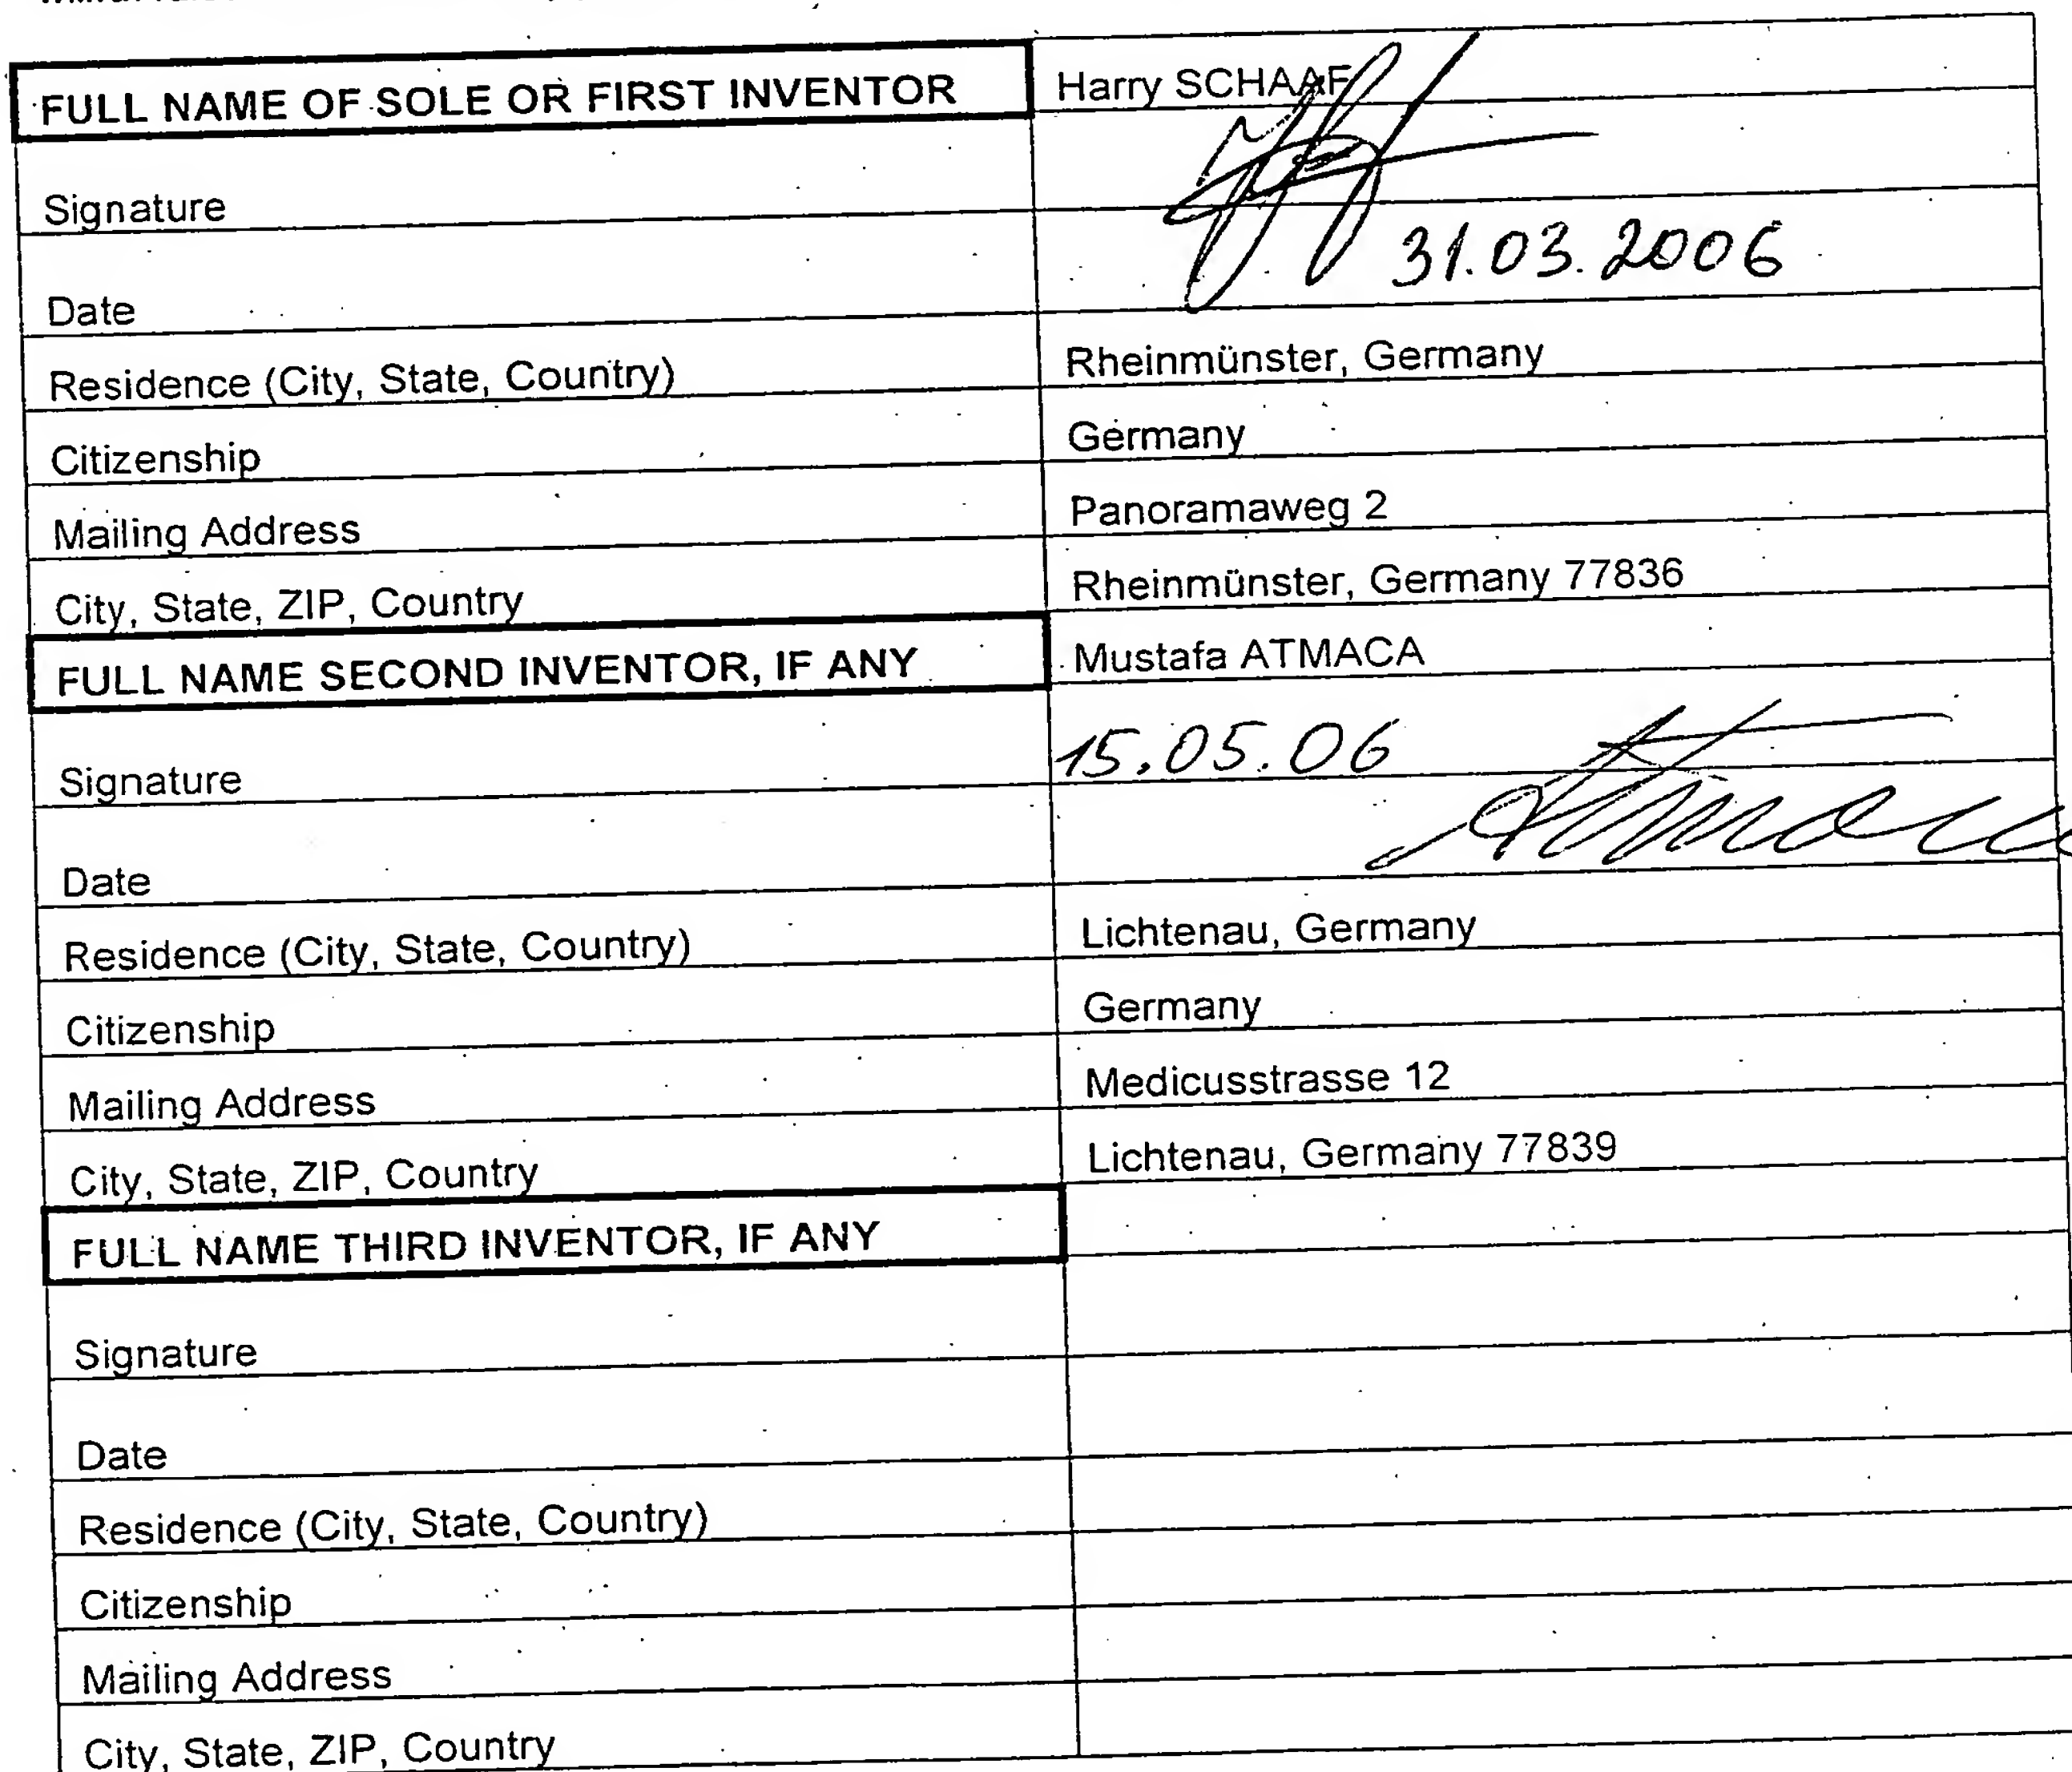 FULL NAME OF SOLE OR FIRST INVENTOR Harry SCHAAF
Signature
Date 31.03.2006
Residence (City, State, Country) Rheinmünster, Germany
Citizenship Germany
Mailing Address Panoramaweg 2
City, State, ZIP, Country Rheinmünster, Germany 77836
FULL NAME SECOND INVENTOR, IF ANY Mustafa ATMACA
Signature 15.05.06
Date
Residence (City, State, Country) Lichtenau, Germany
Citizenship Germany
Mailing Address Medicusstrasse 12
City, State, ZIP, Country Lichtenau, Germany 77839
FULL NAME THIRD INVENTOR, IF ANY
Signature
Date
Residence (City, State, Country)
Citizenship
Mailing Address
City, State, ZIP, Country